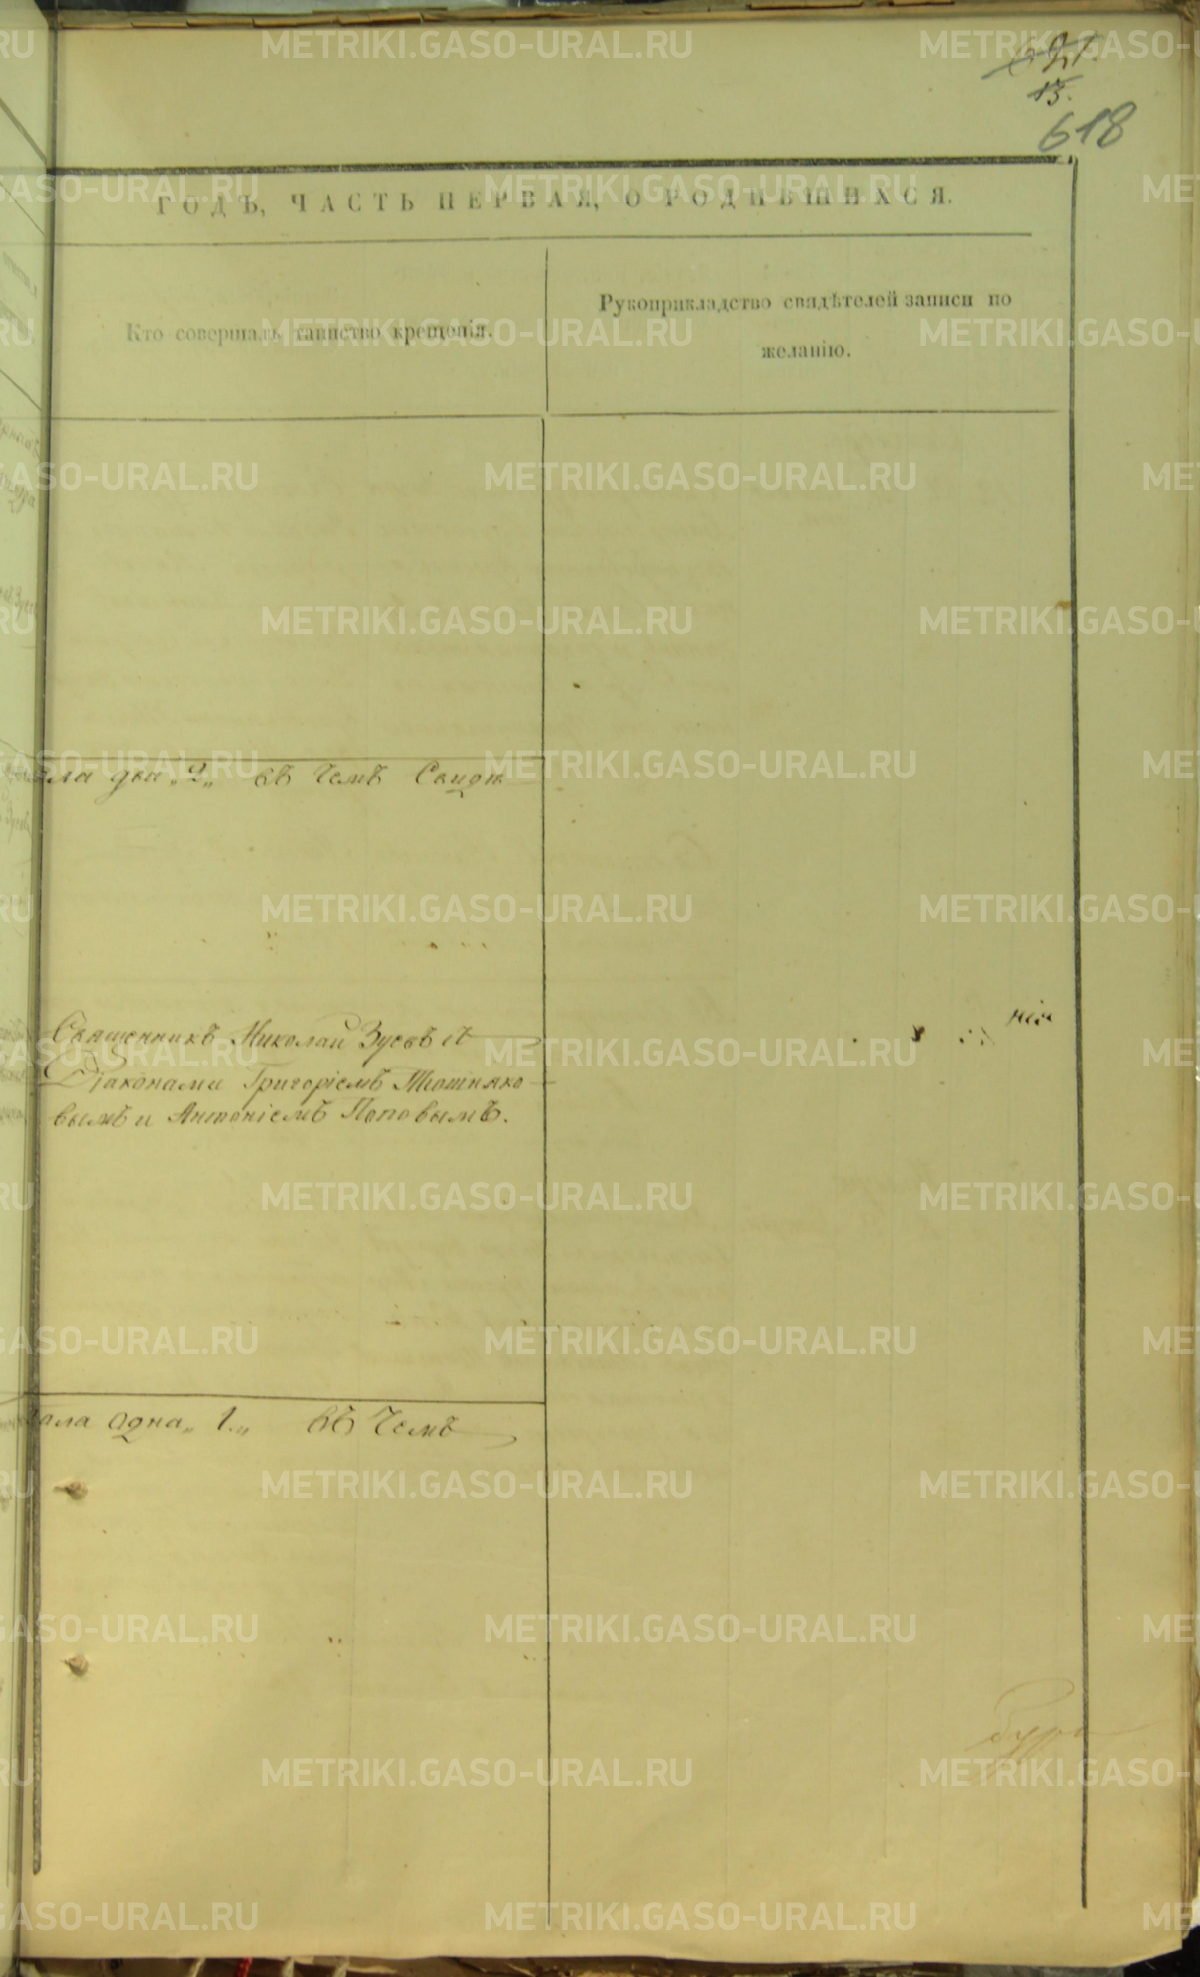 621.
13.
618
ГОДЪ, ЧАСТЬ ПЕРВАЯ, О РОДИВШИХСЯ.
Кто совершалъ таинство крещенія.
Рукоприкладство свидѣтелей записи по
желанію.
ла два „2„ въ чемъ Свидѣ
Священникъ Николай Зуевъ съ
Діаконами Григоріемъ
вымъ и Антоніемъ Поповымъ.
ола одна „1.„ въ чемъ
METRIKI.GASO-URAL.RU